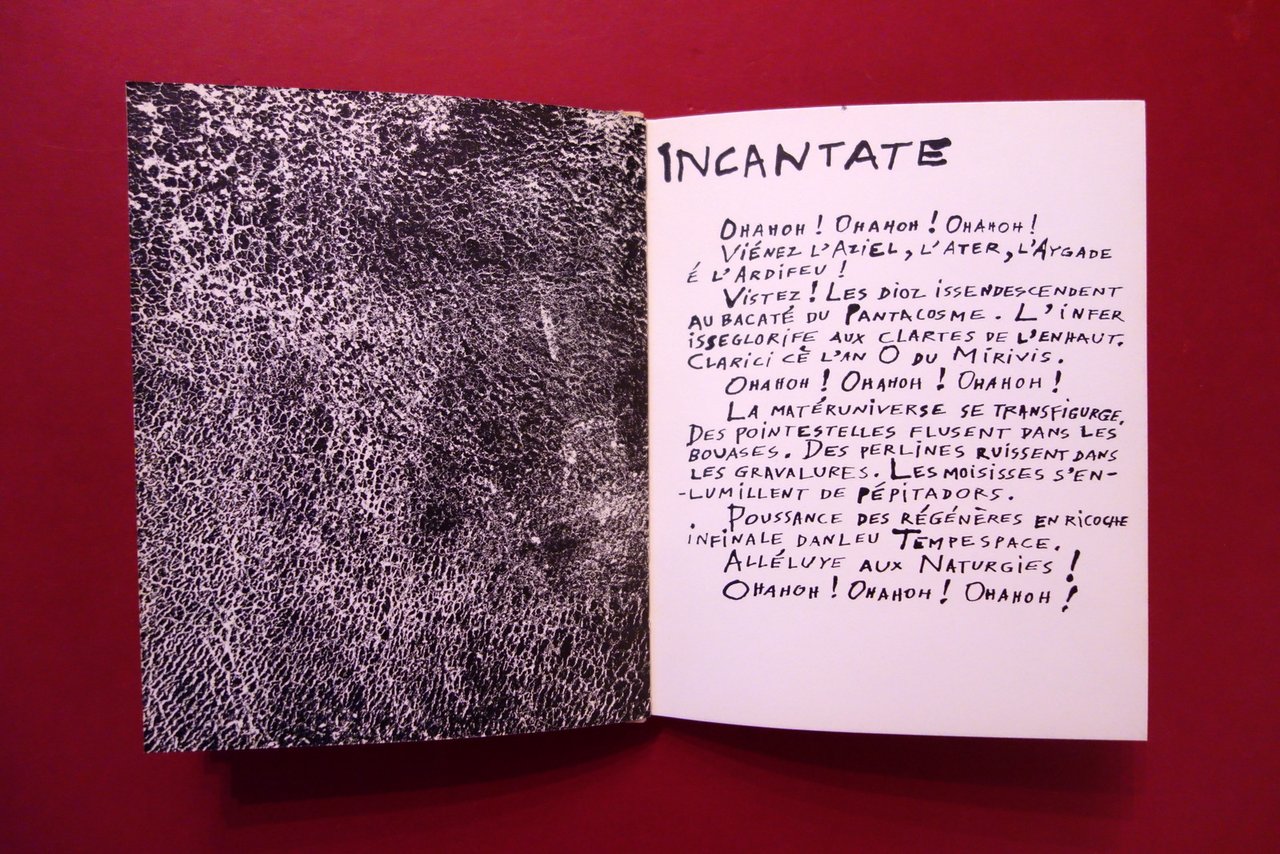 INCANTATE
OHAHOH ! OHAHOH ! OHAHOH !
VIÉNEZ L'AZIEL, L'ATER, L'AYGADE
É L'ARDIFEU !
VISTEZ ! LES DIOZ ISSENDESCENDENT
AU BACATÉ DU PANTACOSME. L'INFER
ISSEGLORIFE AUX CLARTES DE L'ENHAUT.
CLARICI CÈ L'AN O DU MIRIVIS.
OHAHOH ! OHAHOH ! OHAHOH !
LA MATÉRUNIVERSE SE TRANSFIGURGE.
DES POINTESTELLES FLUSENT DANS LES
BOUASES. DES PERLINES RUISSENT DANS
LES GRAVALURES. LES MOISISSES S'EN-
-LUMILLENT DE PÉPITADORS.
POUSSANCE DES RÉGÉNÈRES EN RICOCHE
INFINALE DANLEU TEMPESPACE.
ALLÉLUYE AUX NATURGIES !
OHAHOH ! OHAHOH ! OHAHOH !